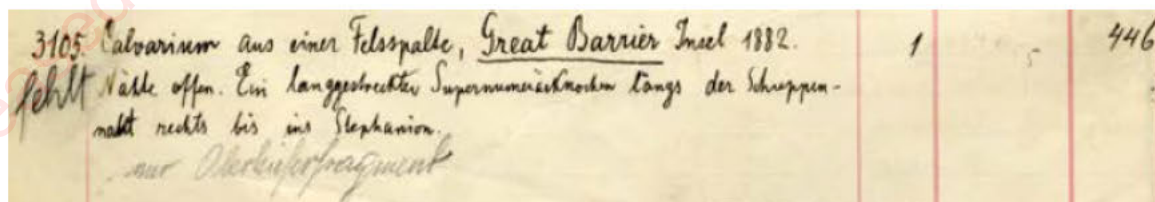 3105. Calvarium aus einer Felsspalte, Great Barrier Insel 1882. 1 446
fehlt Nähte offen. Ein langgestreckter Supernumerärknochen längs der Schuppen-
naht rechts bis ins Stephanion.
nur Oberkieferfragment